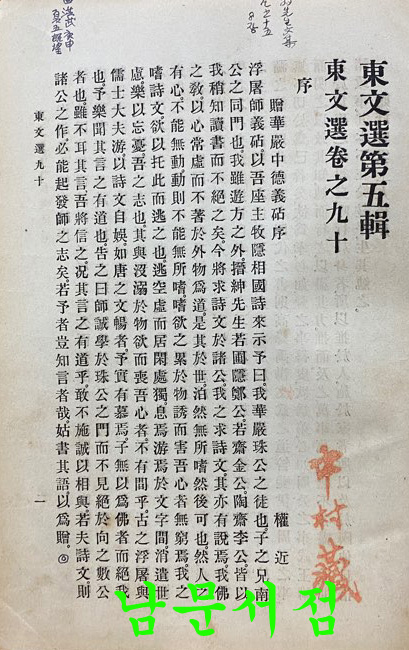 東文選第五輯
東文選卷之九十
序
贈華嚴中德義砧序 權近
浮屠師義砧。以吾座主牧隱相國詩來示予曰。我華嚴珠公之徒也。子之兄南
公之同門也。我雖遊方之外。搢紳先生若圃隱鄭公。若齋金公。陶齋李公。皆以
我稍知讀書而不絕之矣。今將求詩文於諸公。我之求詩文。其亦有說焉。我佛
之敎。以心常虛而不著於外物爲道。是其於世。泊然無所嗜然後可也。然人之
有心。不能無動。動則不能無所嗜。嗜欲之累。於物誘而害吾心者無窮焉。我之
嗜詩文。欲以托此而逃之也。逃空虛而居閑處獨。息焉游焉於文字間。消遣世
慮。樂以忘憂。吾之志也。其與沒溺於物欲而喪吾心者。不有間乎。古之浮屠。與
儒士大夫游。以詩文自娛。如唐之文暢者。予實有慕焉。子無以爲佛者而絕我
也。予樂聞其言之有道也。告之曰。師誠學於珠公之門。而不見絕於向之數公
者也。雖不耳其言。吾將信之。況其言之有道乎。敢不施誠以相與。若夫詩文。則
諸公之作。必能起發師之志矣。若予者。豈知言者哉。姑書其語以爲贈。
東文選九十 一
中村藏
남문서점